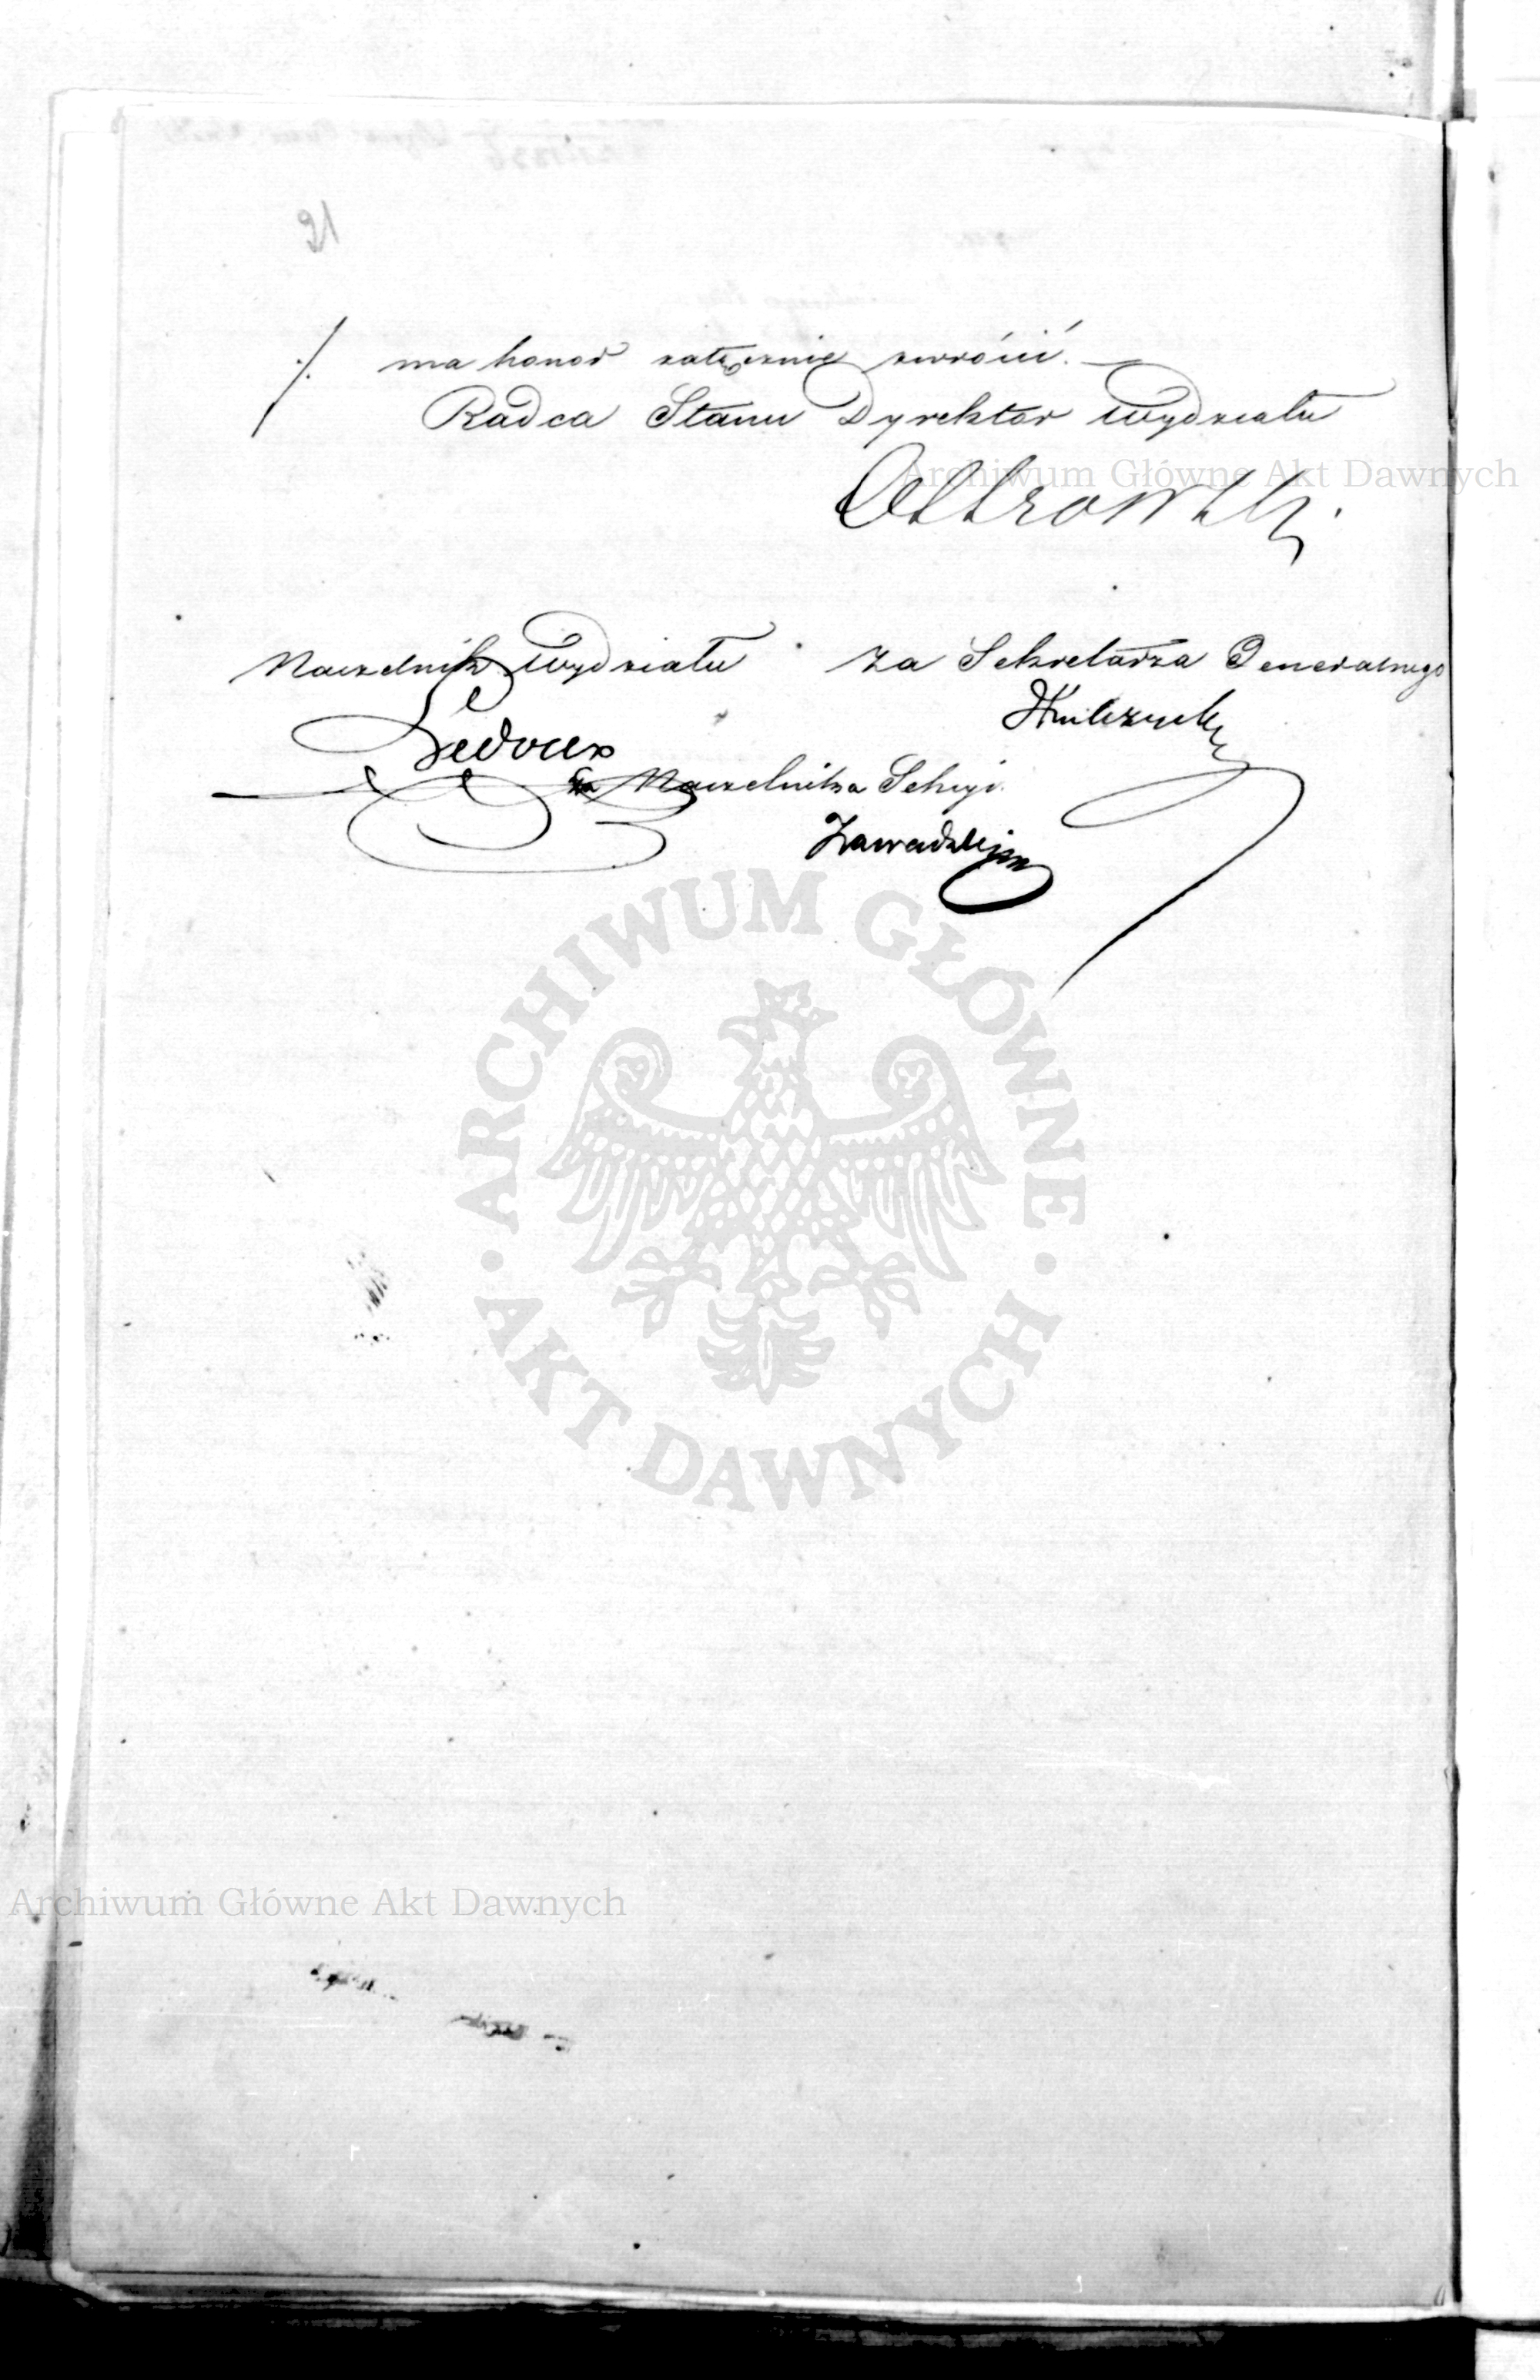 ./. ma honor załącznie zwrócić. —
Radca Stanu Dyrektor Wydziału
Archiwum Główne Akt Dawnych
Ostrowski.
Naczelnik Wydziału za Sekretarza Generalnego
Ledoux
za Naczelnika Sekcyi.
Zawadzki
ARCHIWUM GŁÓWNE
AKT DAWNYCH
Archiwum Główne Akt Dawnych